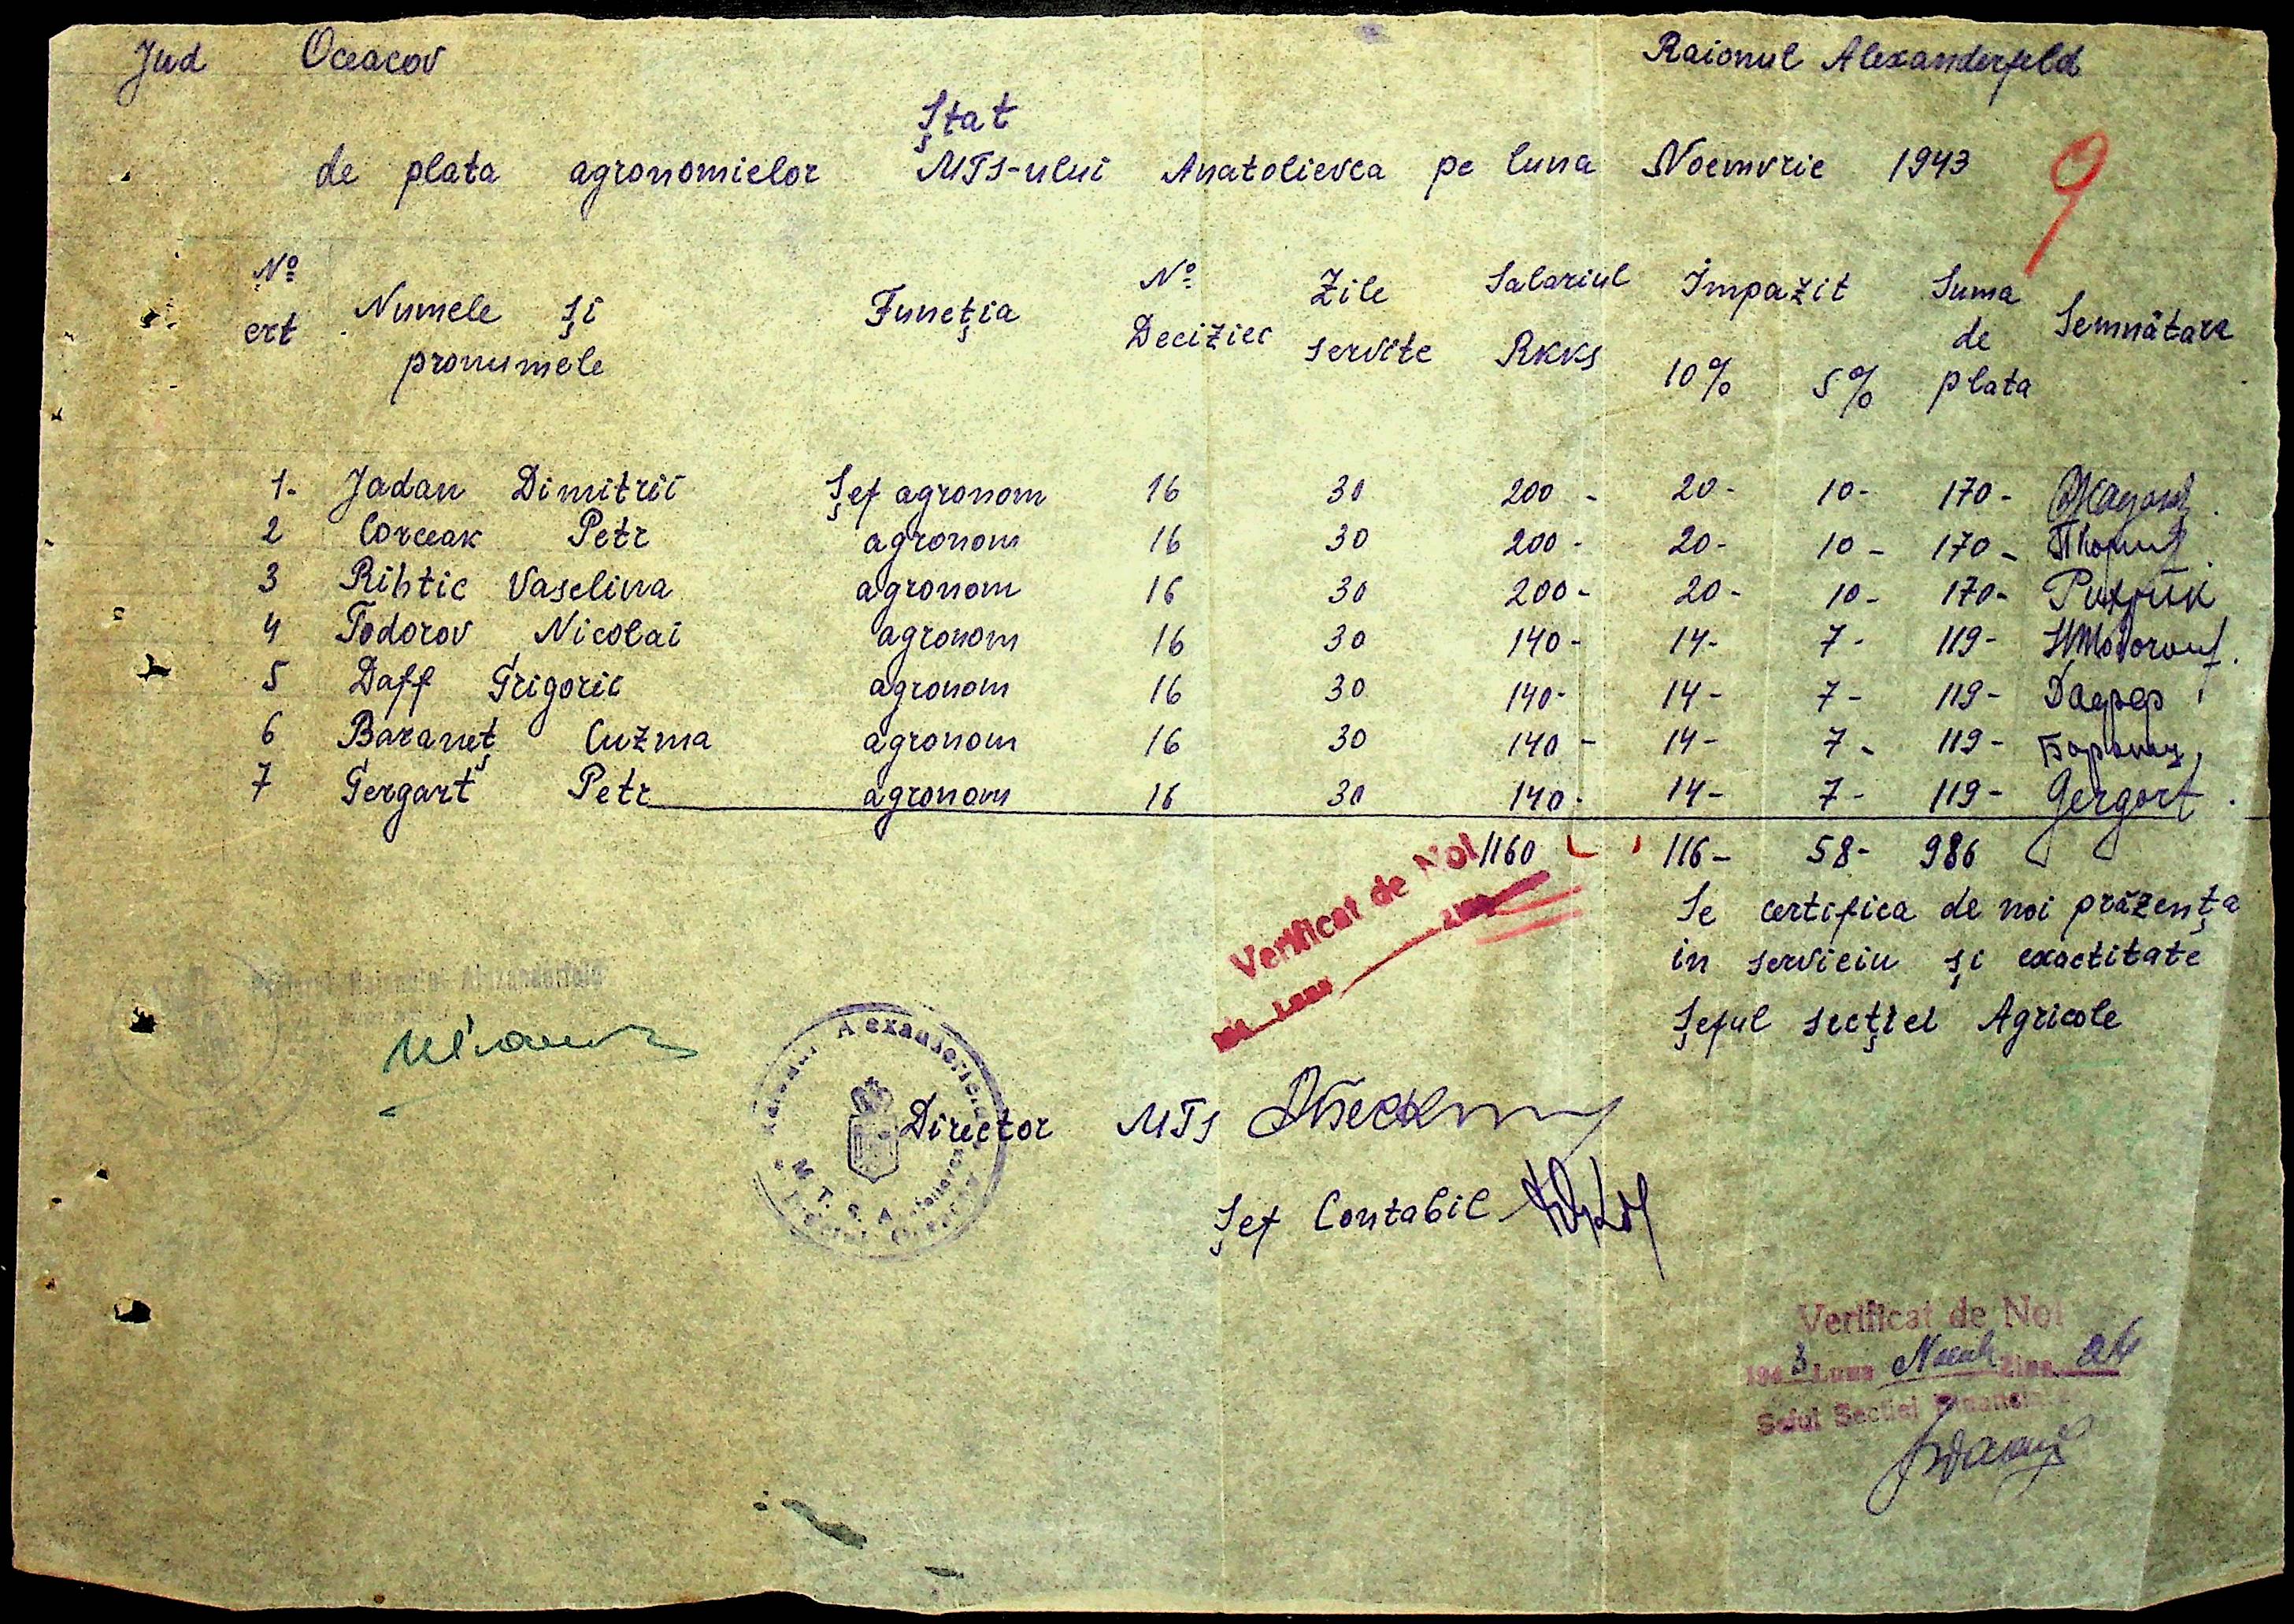 Jud Oceacov Raionul Alexanderfeld
Ștat
de plata agronomielor MTS-ului Anatolievca pe luna Noemvrie 1943
9
№ ert Numele și pronumele Funeția № Deciziei Zile servite Salariul RKKS Impazit 10% 5% Suma de plata Semnătare
1- Jadan Dimitrii Șef agronom 16 30 200 - 20- 10- 170-
2 Corceak Petr agronom 16 30 200- 20- 10- 170-
3 Rihtic Vaselina agronom 16 30 200- 20- 10- 170- Рихтик
4 Todorov Nicolai agronom 16 30 140- 14- 7- 119-
5 Daff Grigorii agronom 16 30 140- 14- 7- 119- Дафф
6 Baraneț Cuzma agronom 16 30 140- 14- 7- 119- Баранец
7 Gergart Petr agronom 16 30 140- 14- 7- 119- Gergart
1160 116- 58- 986
Verificat de Noi
Luna Ziua
Se certifica de noi prăzența
in serviciu și exactitate
Șeful secției Agricole
Raionului Alexanderfeld
M. T. S. Anatolievca
Director MTS
Șef Contabil
Verificat de Noi
1943 Luna Noemb Ziua 24
Șeful Secției Financiare